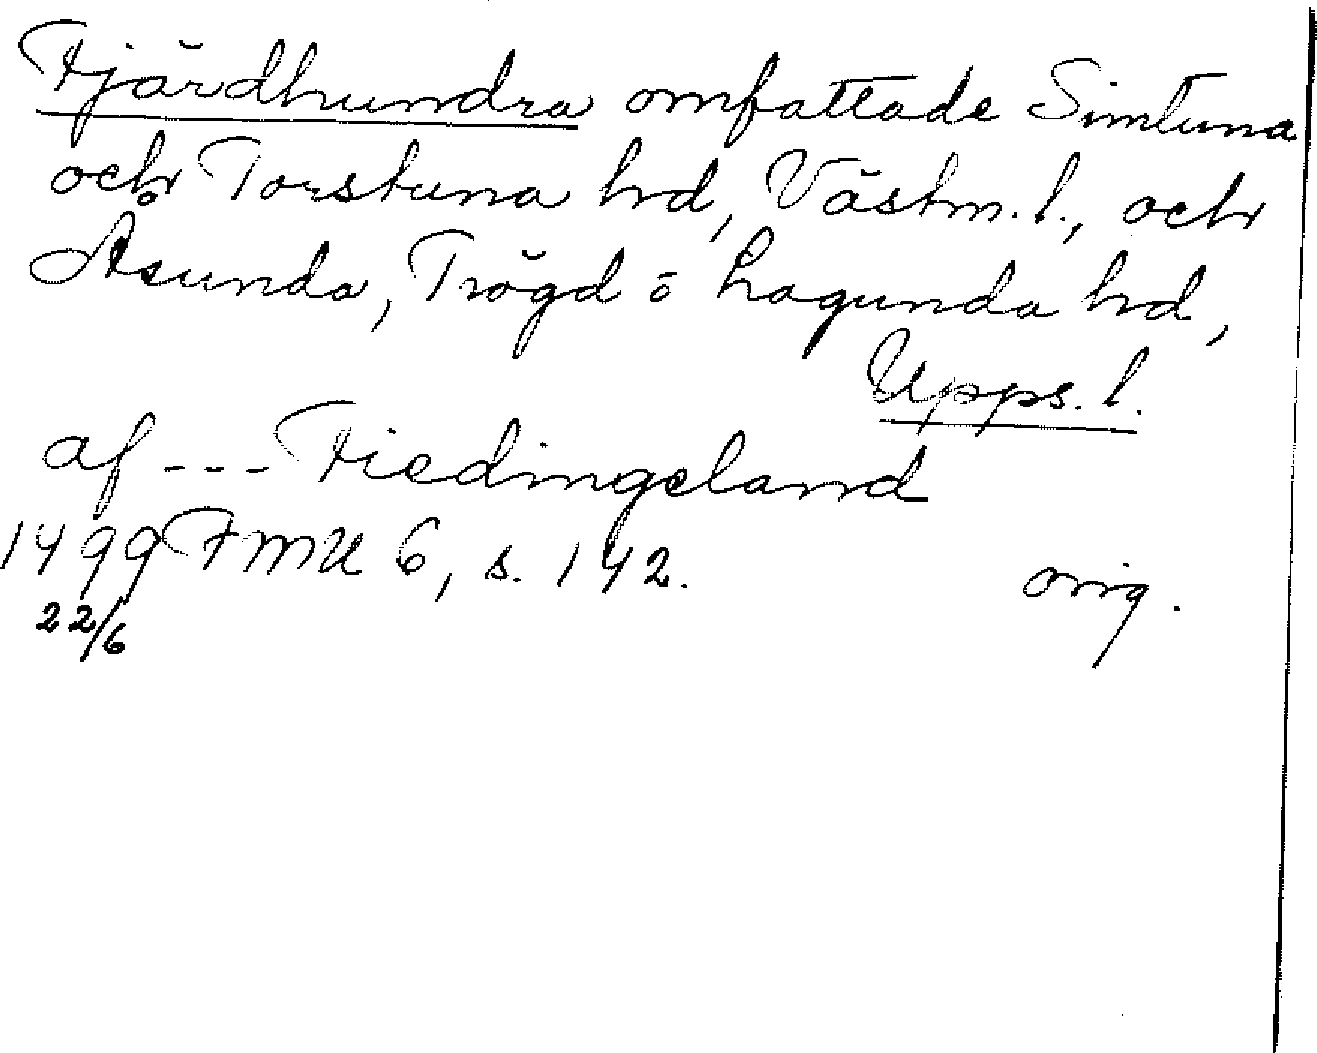 Fjärdhundra omfattade Simtuna
och Torstuna hd, Västm. l., och
Åsunda, Trögd o Lagunda hd,
Upps. l.
af --- Fiedingeland
1499 FMU 6, s. 142. orig.
22/6